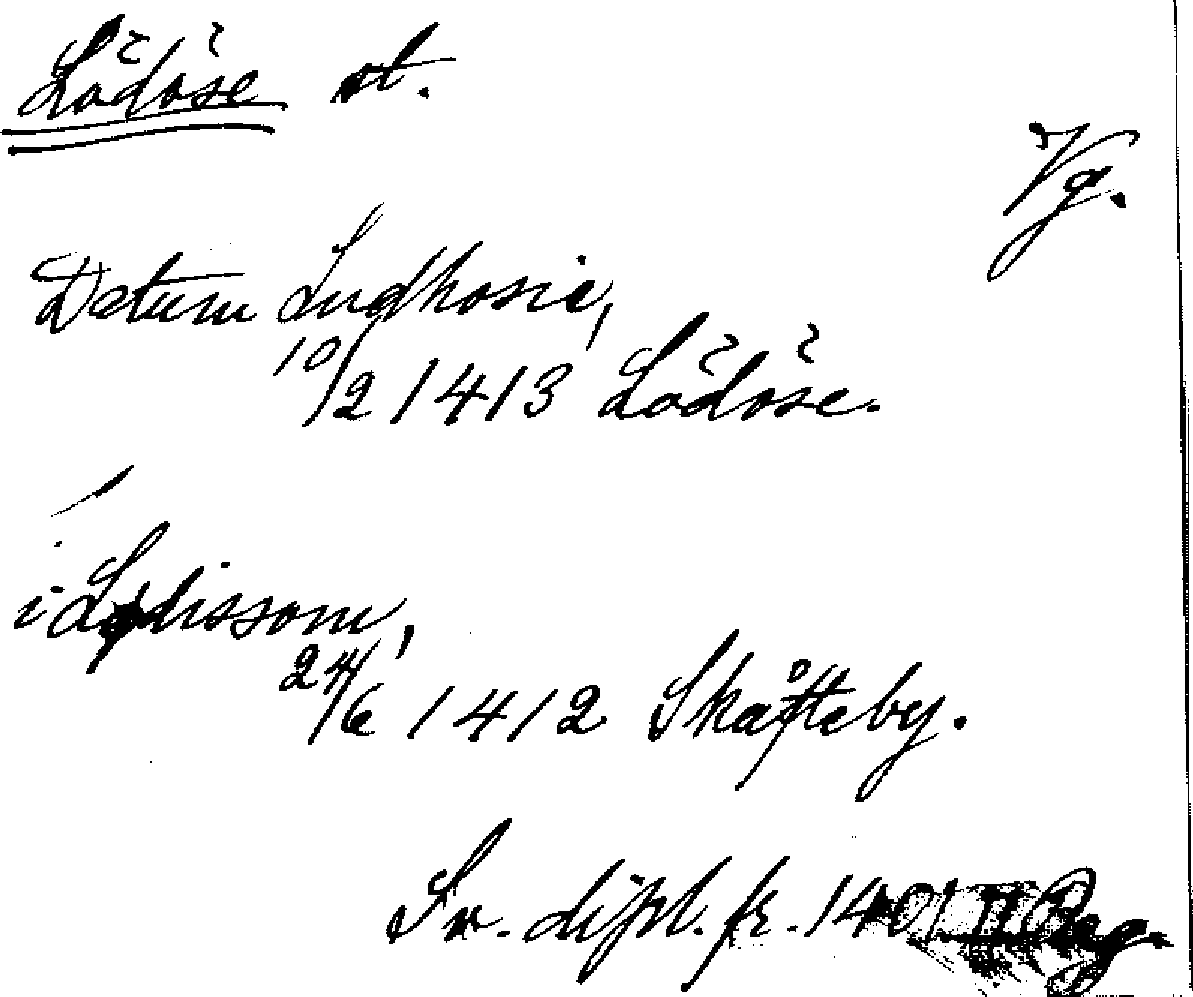 Lödöse st.
Vg.
Datum Ludhosie,
10/2 1413 Lödöse.
i Lydissom,
24/6 1412 Skåfteby.
Sv. dipl. fr. 1401 II Reg.